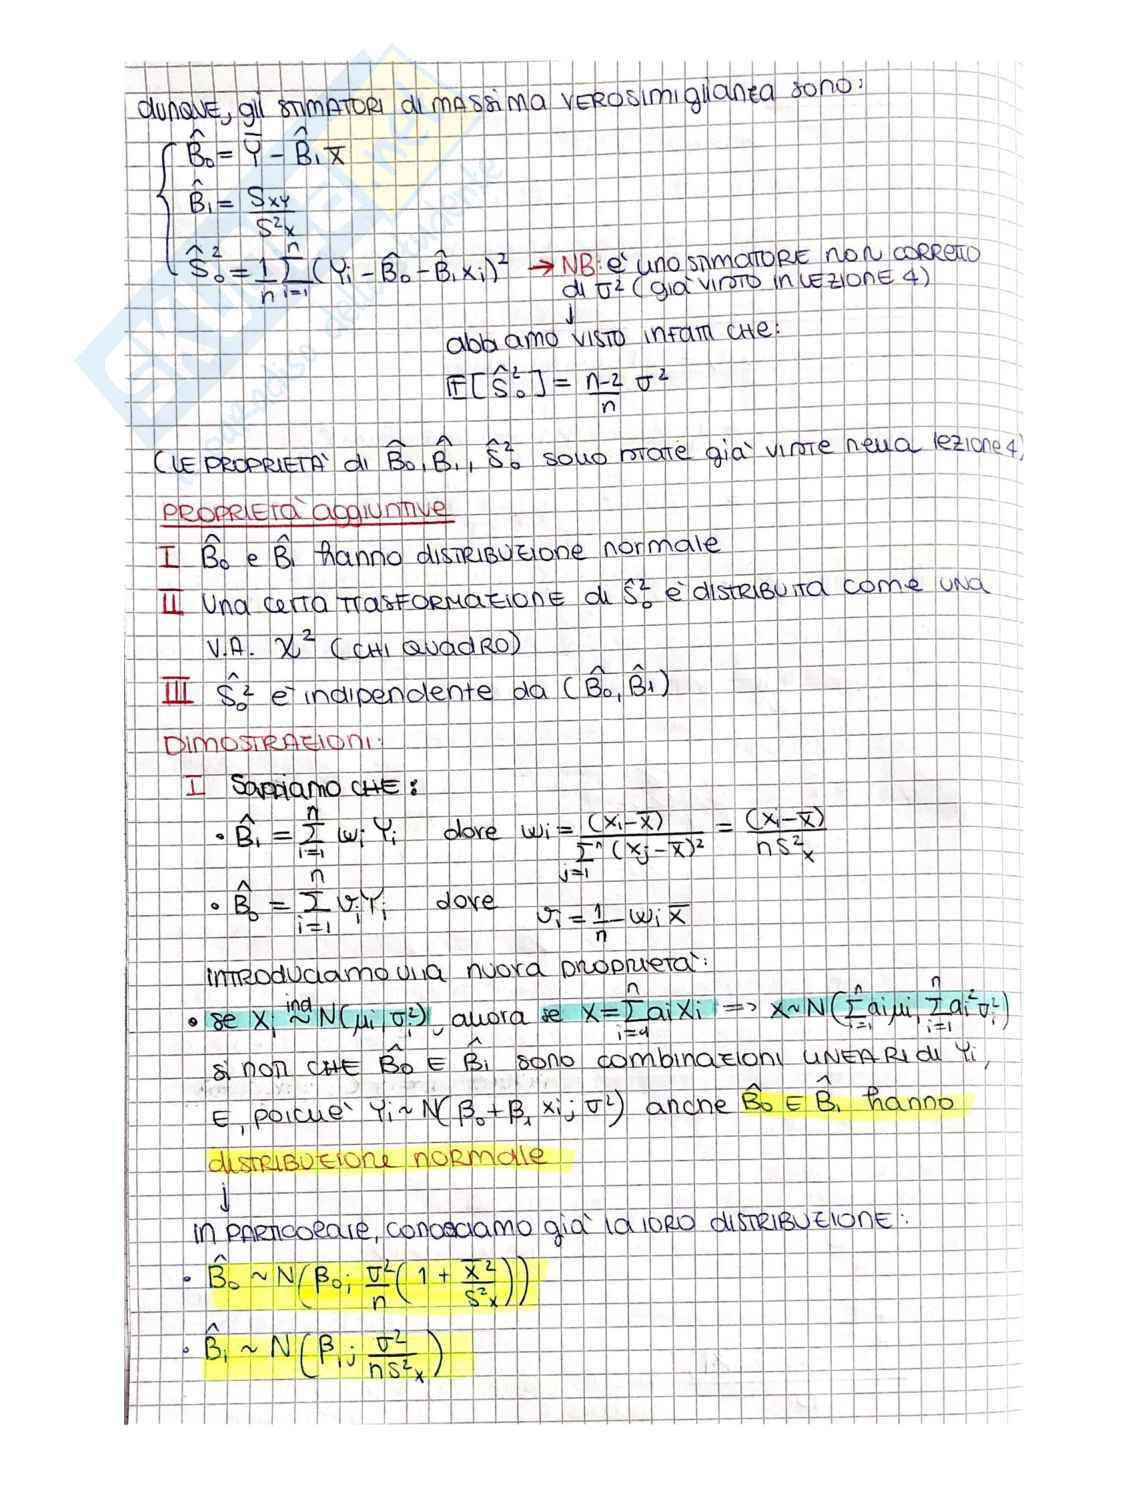 dunque, gli stimatori di massima verosimiglianza sono:
B̂₀ = Ȳ - B̂₁ x̄
B̂₁ = Sxy / S²x
Ŝ₀² = 1/n Σⁿᵢ₌₁ (Yi - B̂₀ - B̂₁ xi)² → NB: è uno stimatore non corretto
di σ² (già visto in lezione 4)
↓
abbiamo visto infatti che:
E[Ŝ₀²] = n-2/n σ²
(le proprietà di B̂₀, B̂₁, Ŝ₀² sono state già viste nella lezione 4)
proprietà aggiuntive
I B̂₀ e B̂₁ hanno distribuzione normale
II Una certa trasformazione di Ŝ₀² è distribuita come una
V.A. χ² (chi quadro)
III Ŝ₀² è indipendente da (B̂₀, B̂₁)
Dimostrazioni:
I Sappiamo che:
• B̂₁ = Σⁿᵢ₌₁ wi Yi dove wi = (xi - x̄) / Σⁿⱼ₌₁ (xj - x̄)² = (xi - x̄) / nS²x
• B̂₀ = Σⁿᵢ₌₁ vi Yi dove vi = 1/n - wi x̄
introduciamo una nuova proprietà:
• se Xi ind~ N(μi, σi²), allora se X = Σⁿᵢ₌₁ ai Xi => X ~ N(Σⁿᵢ₌₁ ai μi, Σⁿᵢ₌₁ ai² σi²)
si non che B̂₀ e B̂₁ sono combinazioni lineari di Yi,
e, poiché Yi ~ N(β₀ + β₁ xi; σ²) anche B̂₀ e B̂₁ hanno
distribuzione normale
↓
in particolare, conosciamo già la loro distribuzione:
• B̂₀ ~ N(β₀; σ²/n (1 + x̄²/S²x))
• B̂₁ ~ N(β₁; σ²/nS²x)